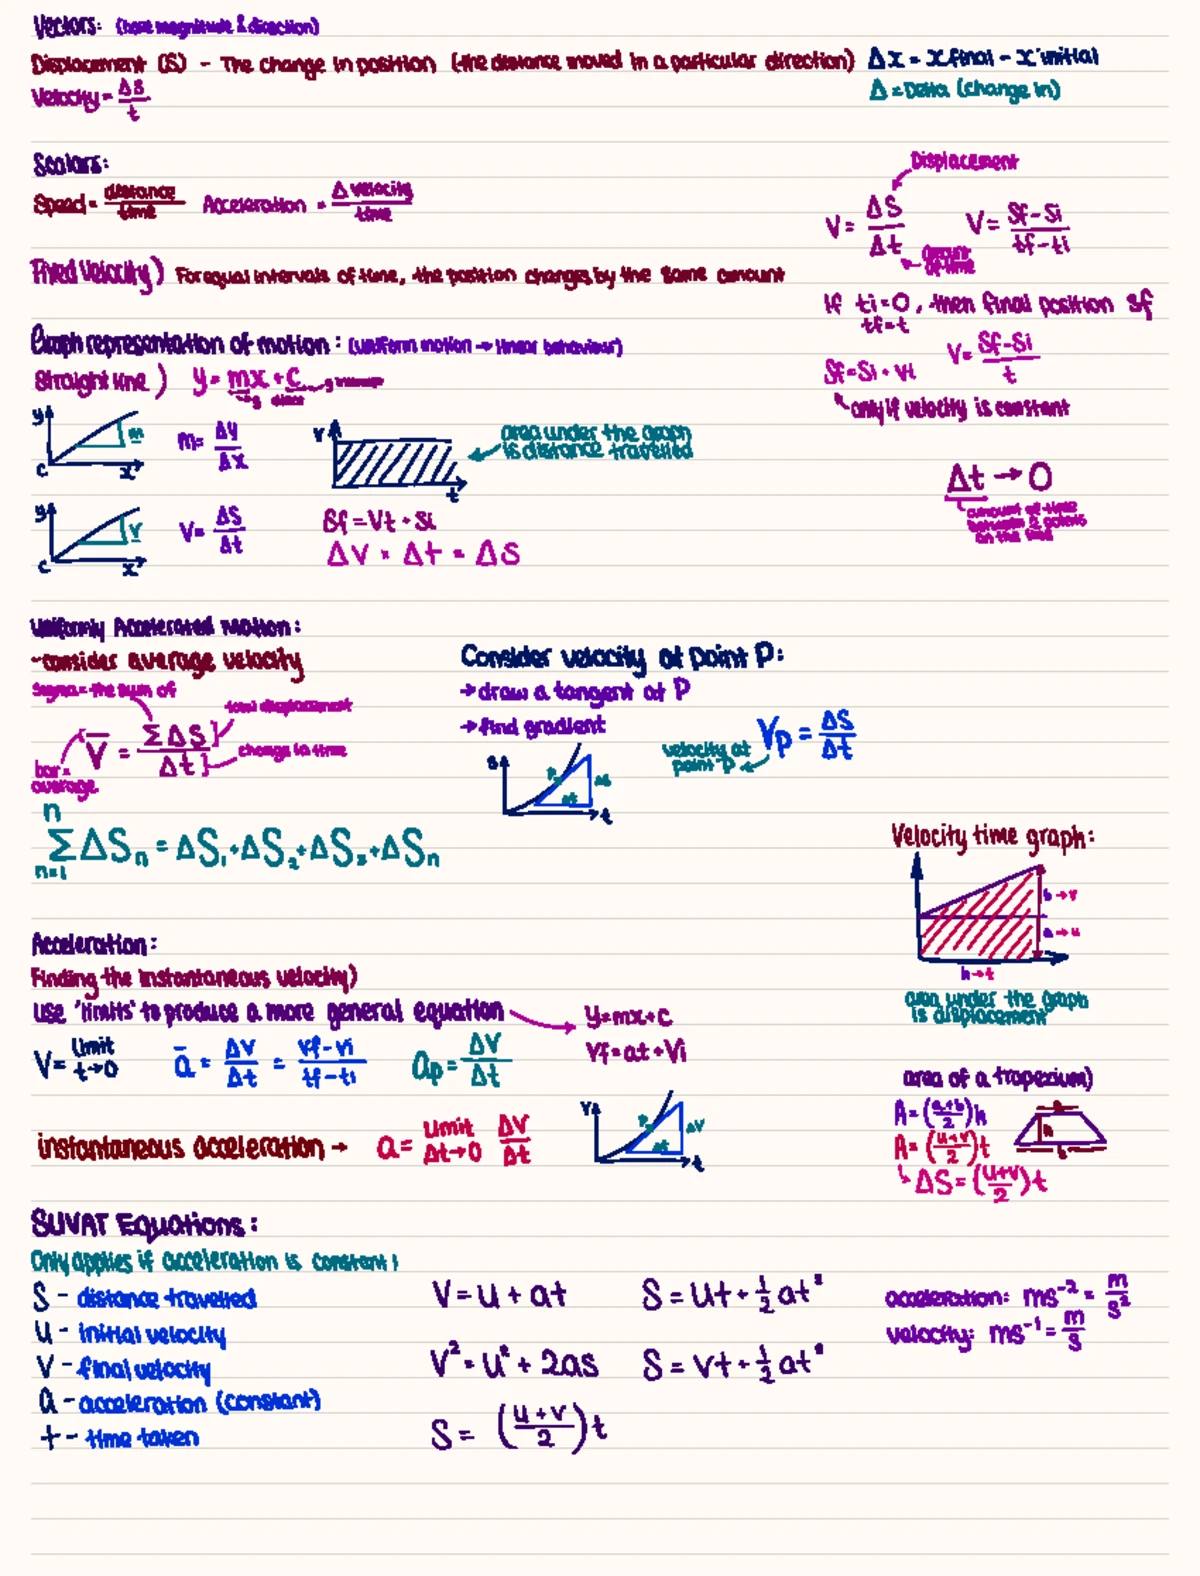 Vectors: (have magnitude & direction)
Displacement (S) - The change in position (the distance moved in a particular direction) Δx = x final - x initial
Velocity = ΔS/t
Δ = Delta (change in)
Scalars:
Speed = distance/time Acceleration = Δ velocity/time
Displacement
V = ΔS/Δt V = Sf-Si/tf-ti
amount of time
Fixed Velocity) For equal intervals of time, the position changes by the same amount
If ti=0, then final position Sf
tf=t
V = Sf-Si/t
Sf = Si + Vt
only if velocity is constant
Graph representation of motion: (uniform motion → linear behaviour)
Straight line) y = mx + c
y m c x
m = Δy/Δx
V t
area under the graph
is distance travelled
y V c x
V = ΔS/Δt
Sf = Vt + Si
ΔV × Δt = ΔS
Δt → 0
amount of time
between 2 points
on the line
Uniformly Accelerated Motion:
-consider average velocity
Sigma = the sum of
total displacement
V̄ = ΣΔS/Δt
change in time
bar =
average
n
Σ ΔSn = ΔS₁+ΔS₂+ΔS₃+ΔSn
n=1
Consider velocity at point P:
→ draw a tangent at P
→ find gradient
Vp = ΔS/Δt
velocity at
point P
S P ΔS Δt t
Velocity time graph:
b → v
a → u
h → t
area under the graph
is displacement
Acceleration:
Finding the instantaneous velocity)
use 'limits' to produce a more general equation
y=mx+c
Vf = at + Vi
V = limit t→0
ā = ΔV/Δt = Vf-Vi/tf-ti
ap = ΔV/Δt
instantaneous acceleration → a = limit Δt→0 ΔV/Δt
V P ΔV Δt t
area of a trapezium)
A = (a+b/2)h
A = (u+v/2)t
ΔS = (u+v/2)t
a h b
SUVAT Equations:
Only applies if acceleration is constant!
S - distance travelled
u - initial velocity
V - final velocity
a - acceleration (constant)
t - time taken
V = u + at
S = ut + ½at²
V² = u² + 2as
S = vt - ½at²
S = (u+v/2)t
acceleration: ms⁻² = m/s²
velocity: ms⁻¹ = m/s